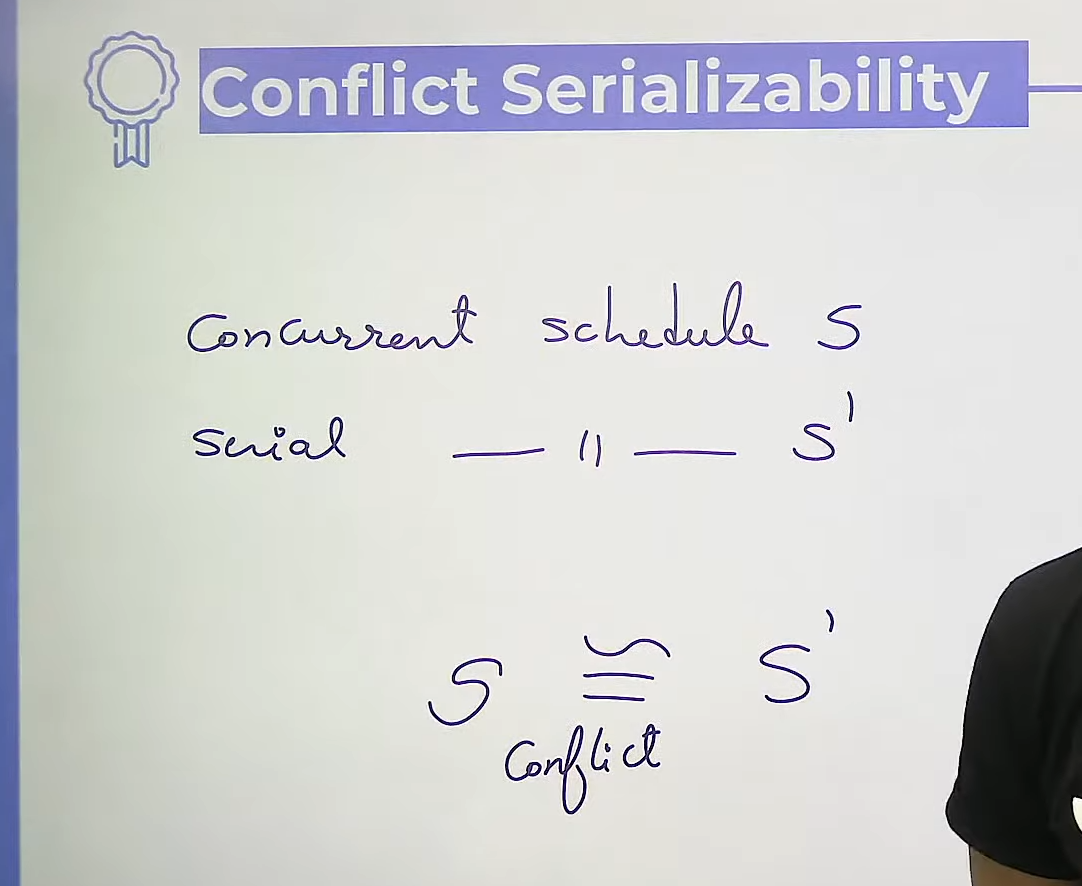 Conflict Serializability
Concurrent schedule S
Serial — " — S'
S ≅ S'
Conflict